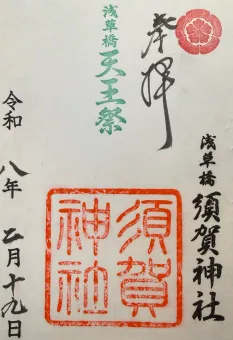 奉拝
浅草橋
天王祭
浅草橋
須賀神社
須賀
神社
令和八年二月十九日